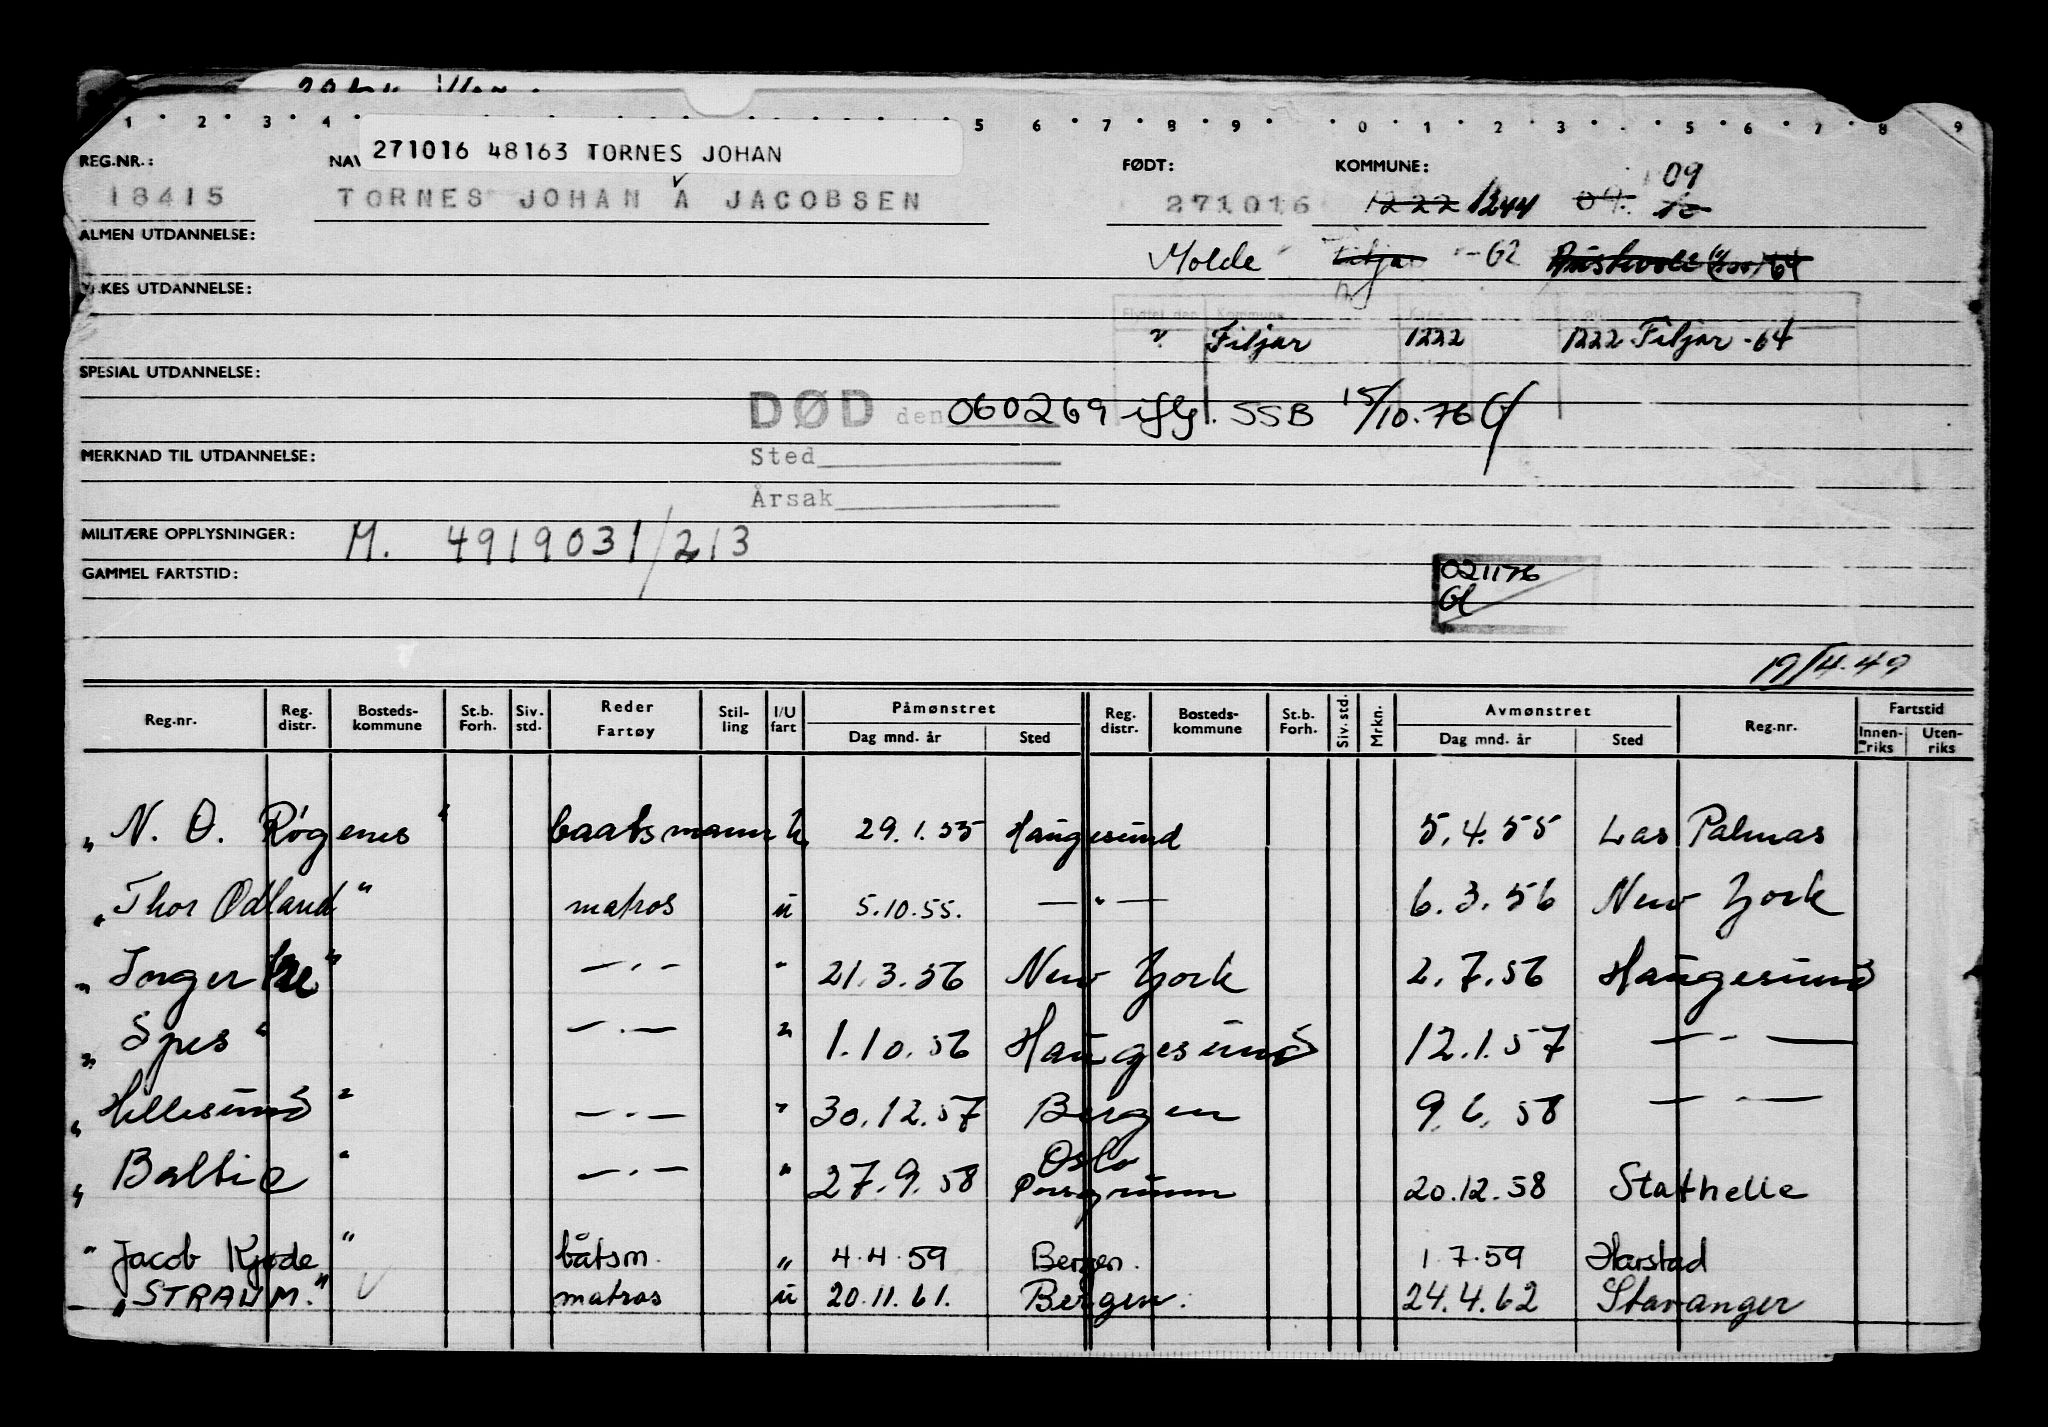 1 2 3 4 5 6 7 8 9 0 1 2 3 5 6 7 8 9
271016 48163 TORNES JOHAN
REG.NR.: NAV FØDT: KOMMUNE: 09
18415 TORNES JOHAN A JACOBSEN 271016 1222 1244 04 10
ALMEN UTDANNELSE:
Molde Fitjar -62
YRKES UTDANNELSE:
Flyttet den Kommune
" Fitjar 1222 1222 Fitjar -64
SPESIAL UTDANNELSE:
DØD den 060269 iflg. SSB 15/10.76
MERKNAD TIL UTDANNELSE:
Sted
Årsak
MILITÆRE OPPLYSNINGER: M. 4919031/213
GAMMEL FARTSTID:
021176
Gl
19/4.49
Reg.nr. Reg. distr. Bosteds-kommune St.b. Forh. Siv. std. Reder Fartøy Stil-ling I/U fart Påmønstret Dag mnd. år Sted Reg. distr. Bosteds-kommune St.b. Forh. Siv. std. Mrkn. Avmønstret Dag mnd. år Sted Reg.nr. Fartstid Innen-riks Uten-riks
„N. O. Røgenes" baatsmann u 29.1.55 Haugesund 5.4.55 Las Palmas
„Thor Odland" matros u 5.10.55. —"— 6.3.56 New York
„Ingerfire" —"— " 21.3.56 New York 2.7.56 Haugesund
„Spes" —"— " 1.10.56 Haugesund 12.1.57 —"—
„Hillesund" —"— " 30.12.57 Bergen 9.6.58 —"—
„Baltic" —"— " 27.9.58 Oslo Porsgrunn 20.12.58 Stathelle
"Jacob Kjøde" båtsm. " 4.4.59 Bergen. 1.7.59 Harstad
„STRAUM." matros u 20.11.61. Bergen. 24.4.62 Stavanger